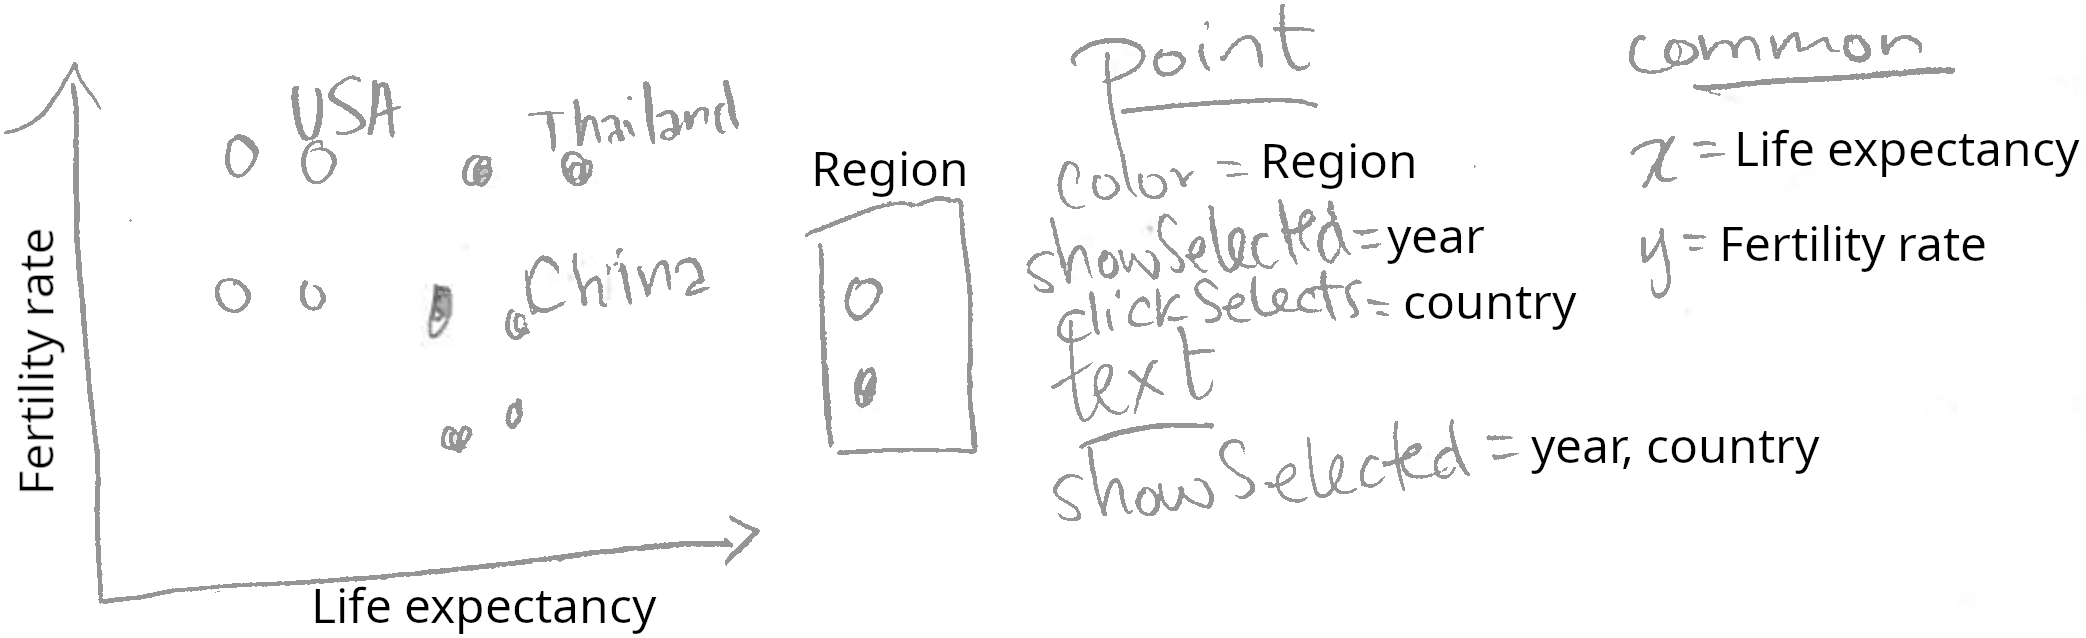 Fertility rate
USA
Thailand
China
Life expectancy
Region
Point
color = Region
showSelected = year
clickSelects = country
text
showSelected = year, country
common
x = Life expectancy
y = Fertility rate